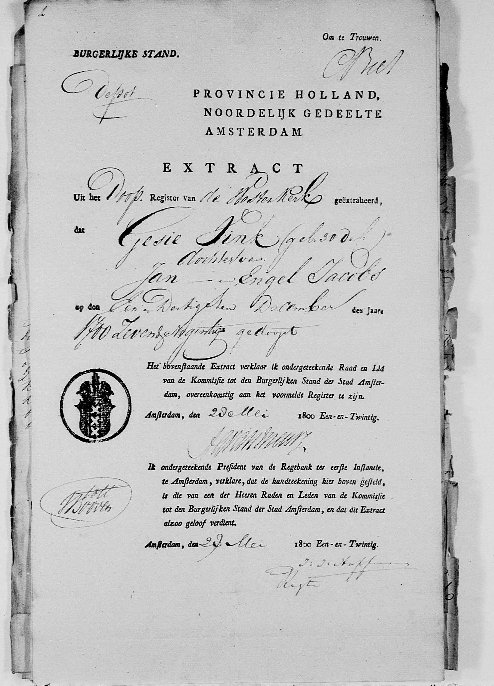 Om te Trouwen.
BURGERLIJKE STAND.
Depot
PROVINCIE HOLLAND,
NOORDELIJK GEDEELTE
AMSTERDAM
EXTRACT
Uit het Doop Register van de Oosterkerk geëxtraheerd,
dat Gesie Sink
dochter van
Jan en Engel Jacobs
op den Een en Dertigsten December des Jaars
1700 Zeven en Negentig gedoopt
Het bovenstaande Extract verklaar ik ondergeteekende Raad en Lid
van de Kommissie tot den Burgerlijken Stand der Stad Amster-
dam, overeenkomstig aan het voormeldt Register te zijn.
Amsterdam, den 23 de Mei 1800 Een-en-Twintig.
Ik ondergeteekende President van de Regtbank ter eerste Instantie,
te Amsterdam, verklare, dat de handteekening hier boven gesteld,
is die van een der Heeren Raden en Leden van de Kommissie
tot den Burgerlijken Stand der Stad Amsterdam, en dat dit Extract
alzoo geloof verdient.
Amsterdam, den 23 Mei 1800 Een-en-Twintig.